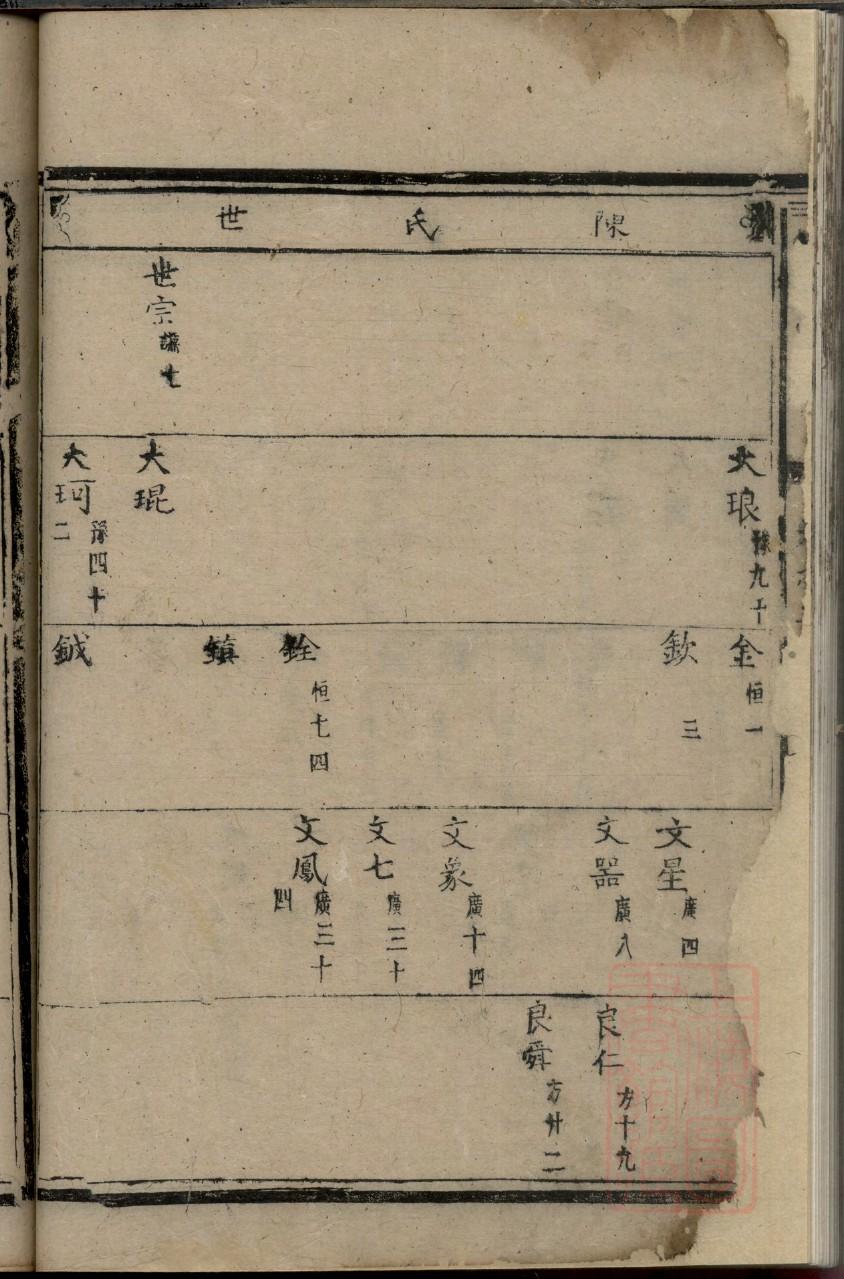 陳氏世
世宗 謙七
大琅 豫九十
大琨
大珂 豫四十二
金 恒一
欽 三
銓 恒七四
鎮
鉞
文星 廣四
文器 廣八
文象 廣十四
文七 廣三十
文鳳 廣三十四
良仁 方十九
良舜 方廿二